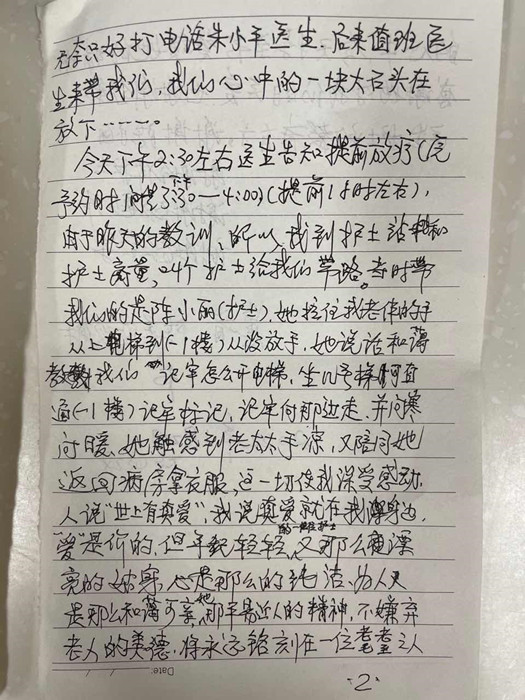 无奈只好打电话朱小平医生.后来值班医
生来带我们,我们心中的一块大石头在
放下……。
今天下午2:30左右医生告知提前放疗(完
予约时间是下午3:30—4:00)(提前1小时左右),
由于昨天的教训、所以我到护士站和
护士商量,叫个护士给我们带路。当时带
我们的是陈小丽(护士),她拉住我老伴的手
从上电梯到(-1楼)从没放手,她说话和蔼
教我们记牢怎么开电梯,坐几号梯可直
通(-1楼)记牢标记,记牢向那边走.并问寒
问暖,她触感到老太太手凉,又陪同她
返回病房拿衣服,这一切使我深受感动.
人说"世上有真爱",我说真爱就在我身边,
"爱"是价的,但年纪轻轻,又那么漂
亮的姑娘,心是那么的纯洁.为人又
是那么和蔼可亲,她那平易近人的精神,不嫌弃
老人的美德,将永远铭刻在一位耄耋之人
Date:
·2·